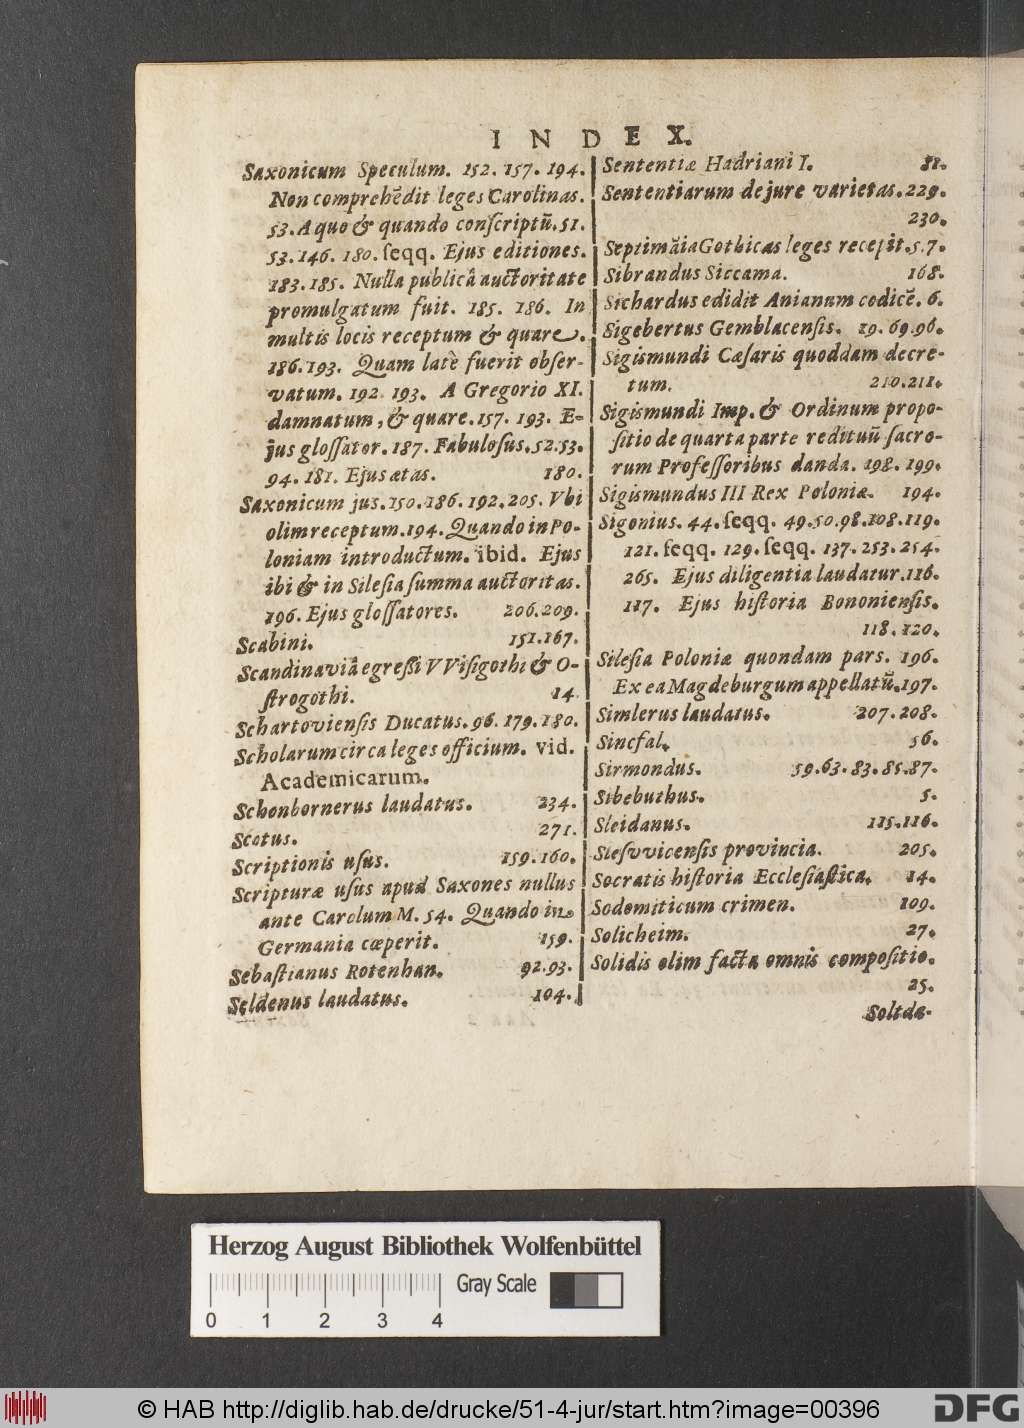 INDEX.
Saxonicum Speculum. 152. 157. 194.
Non comprehēdit leges Carolinas.
53. A quo & quando conscriptū. 51.
53. 146. 180. seqq. Ejus editiones.
183. 185. Nulla publicâ auctoritate
promulgatum fuit. 185. 186. In
multis locis receptum & quare.
186. 193. Quam latè fuerit obser-
vatum. 192 193. A Gregorio XI.
damnatum, & quare. 157. 193. E-
jus glossator. 187. Fabulosus. 52. 53.
94. 181. Ejus ætas. 180.
Saxonicum jus. 150. 186. 192. 205. Vbi
olim receptum. 194. Quando in Po-
loniam introductum. ibid. Ejus
ibi & in Silesia summa auctoritas.
196. Ejus glossatores. 206. 209.
Scabini. 151. 167.
Scandinaviâ egressi VVisigothi & O-
strogothi. 14
Schartoviensis Ducatus. 96. 179. 180.
Scholarum circa leges officium. vid.
Academicarum.
Schonbornerus laudatus. 234.
Scotus. 271.
Scriptionis usus. 159. 160.
Scripturæ usus apud Saxones nullus
ante Carolum M. 54. Quando in
Germania cœperit. 159.
Sebastianus Rotenhan. 92. 93.
Seldenus laudatus. 104.
Sententiæ Hadriani I. 81.
Sententiarum de jure varietas. 229.
230.
Septimāia Gothicas leges recepit. 5. 7.
Sibrandus Siccama. 168.
Sichardus edidit Anianum codicē. 6.
Sigebertus Gemblacensis. 19. 69. 96.
Sigismundi Cæsaris quoddam decre-
tum. 210. 211.
Sigismundi Imp. & Ordinum propo-
sitio de quarta parte redituū sacro-
rum Professoribus danda. 198. 199.
Sigismundus III Rex Poloniæ. 194.
Sigonius. 44. seqq. 49. 50. 98. 108. 119.
121. seqq. 129. seqq. 137. 253. 254.
265. Ejus diligentia laudatur. 116.
117. Ejus historia Bononiensis.
118. 120.
Silesia Poloniæ quondam pars. 196.
Ex ea Magdeburgum appellatū. 197.
Simlerus laudatus. 207. 208.
Sincfal. 56.
Sirmondus. 59. 63. 83. 85. 87.
Sibebuthus. 5.
Sleidanus. 115. 116.
Slesvvicensis provincia. 205.
Socratis historia Ecclesiastica. 14.
Sodomiticum crimen. 109.
Solicheim. 27.
Solidis olim facta omnis compositio.
25.
Soltdæ-
Herzog August Bibliothek Wolfenbüttel
Gray Scale
0 1 2 3 4
© HAB http://diglib.hab.de/drucke/51-4-jur/start.htm?image=00396
DFG